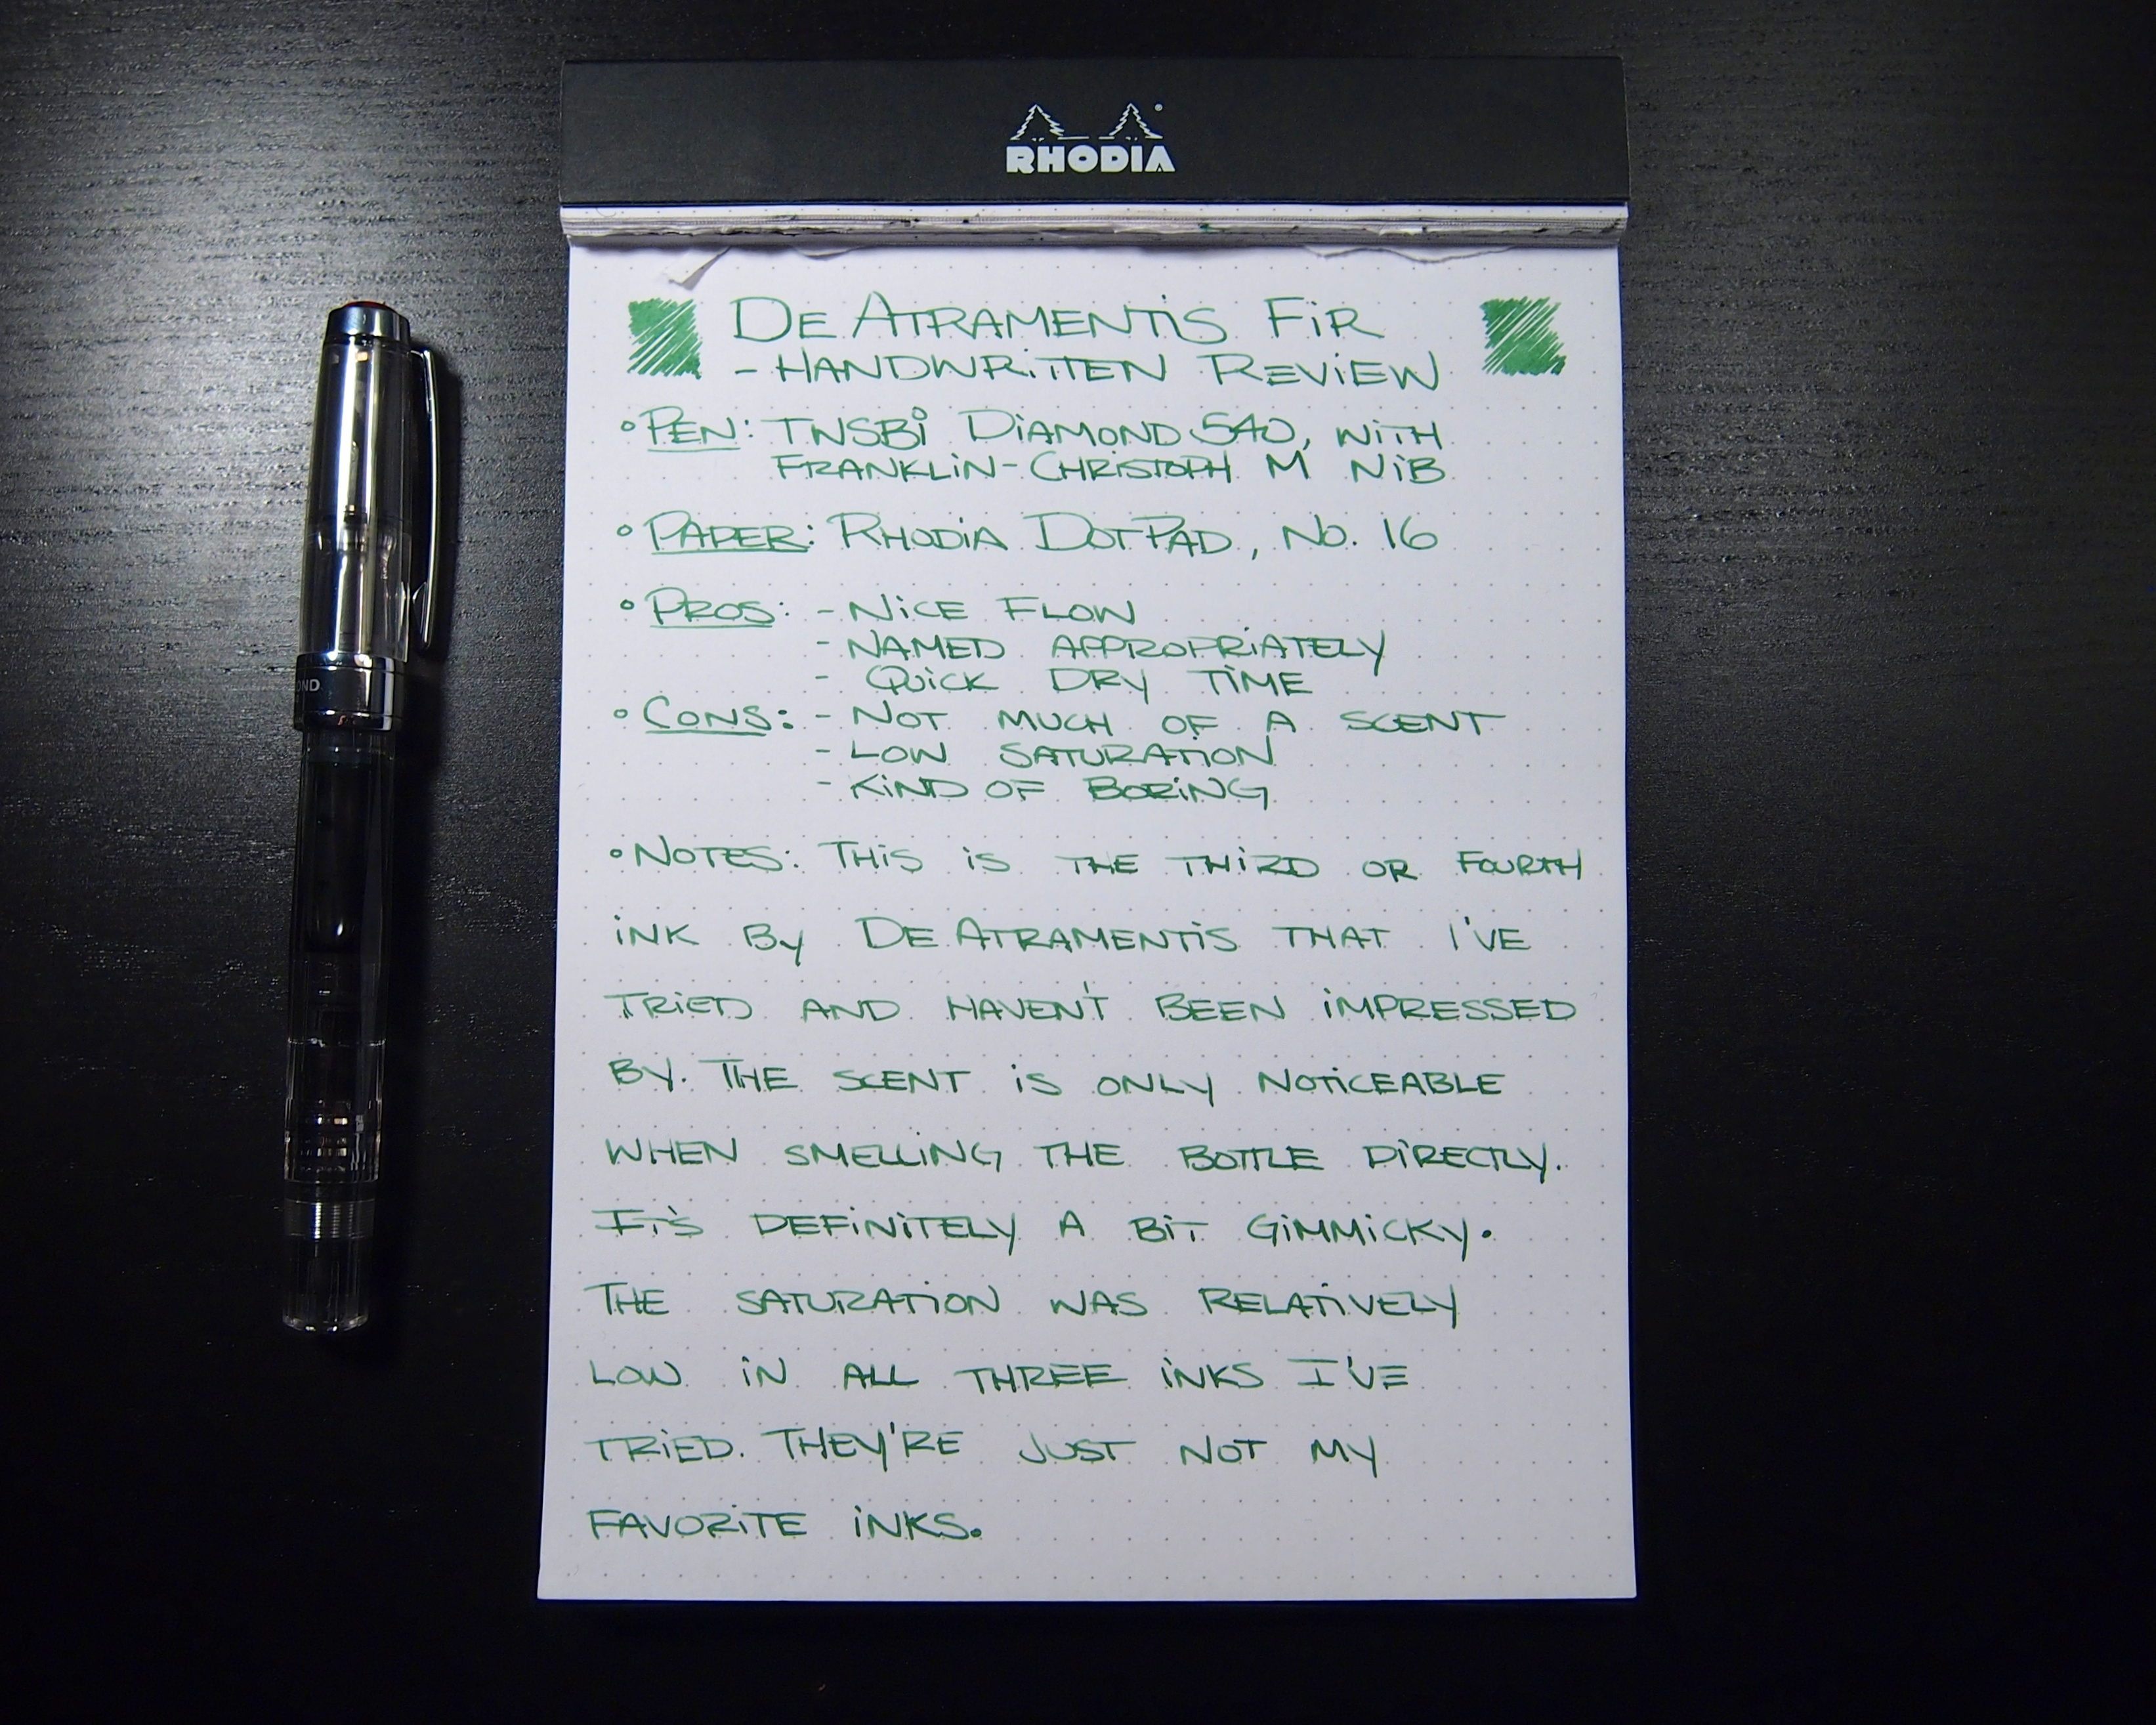 RHODIA
DE ATRAMENTIS FIR
- HANDWRITTEN REVIEW
• PEN: TWSBI DIAMOND 540, WITH
FRANKLIN-CHRISTOPH M NIB
• PAPER: RHODIA DOTPAD, NO. 16
• PROS: - NICE FLOW
- NAMED APPROPRIATELY
- QUICK DRY TIME
• CONS: - NOT MUCH OF A SCENT
- LOW SATURATION
- KIND OF BORING
• NOTES: THIS IS THE THIRD OR FOURTH
INK BY DE ATRAMENTIS THAT I'VE
TRIED AND HAVEN'T BEEN IMPRESSED
BY. THE SCENT IS ONLY NOTICEABLE
WHEN SMELLING THE BOTTLE DIRECTLY.
IT'S DEFINITELY A BIT GIMMICKY.
THE SATURATION WAS RELATIVELY
LOW IN ALL THREE INKS I'VE
TRIED. THEY'RE JUST NOT MY
FAVORITE INKS.
OND